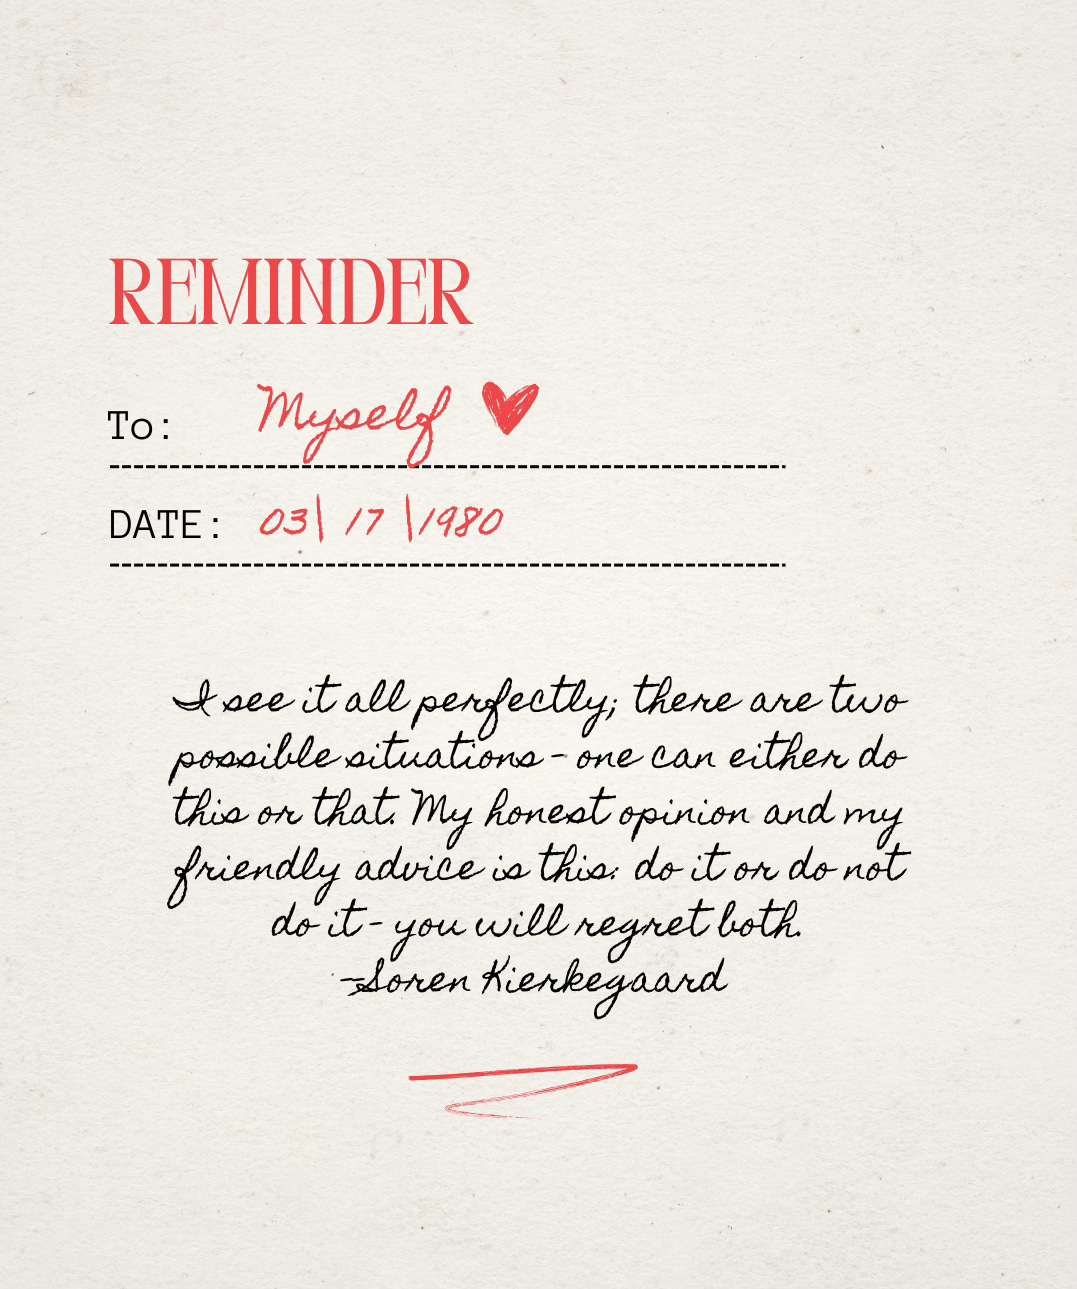 REMINDER
To: Myself
DATE: 03| 17 |1980
I see it all perfectly; there are two
possible situations - one can either do
this or that. My honest opinion and my
friendly advice is this: do it or do not
do it - you will regret both.
-Soren Kierkegaard